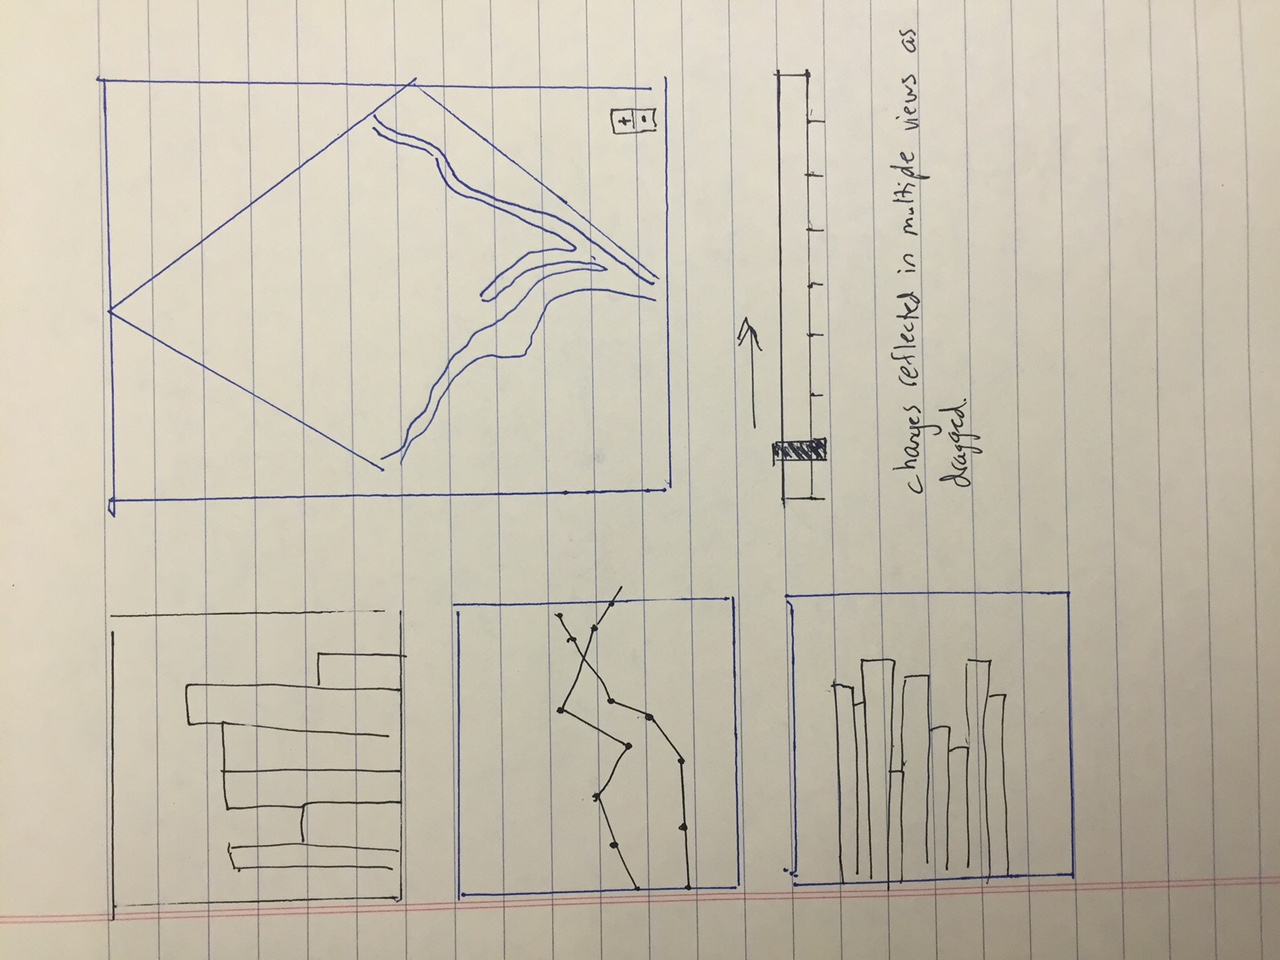 +
-
changes reflected in multiple views as
dragged.